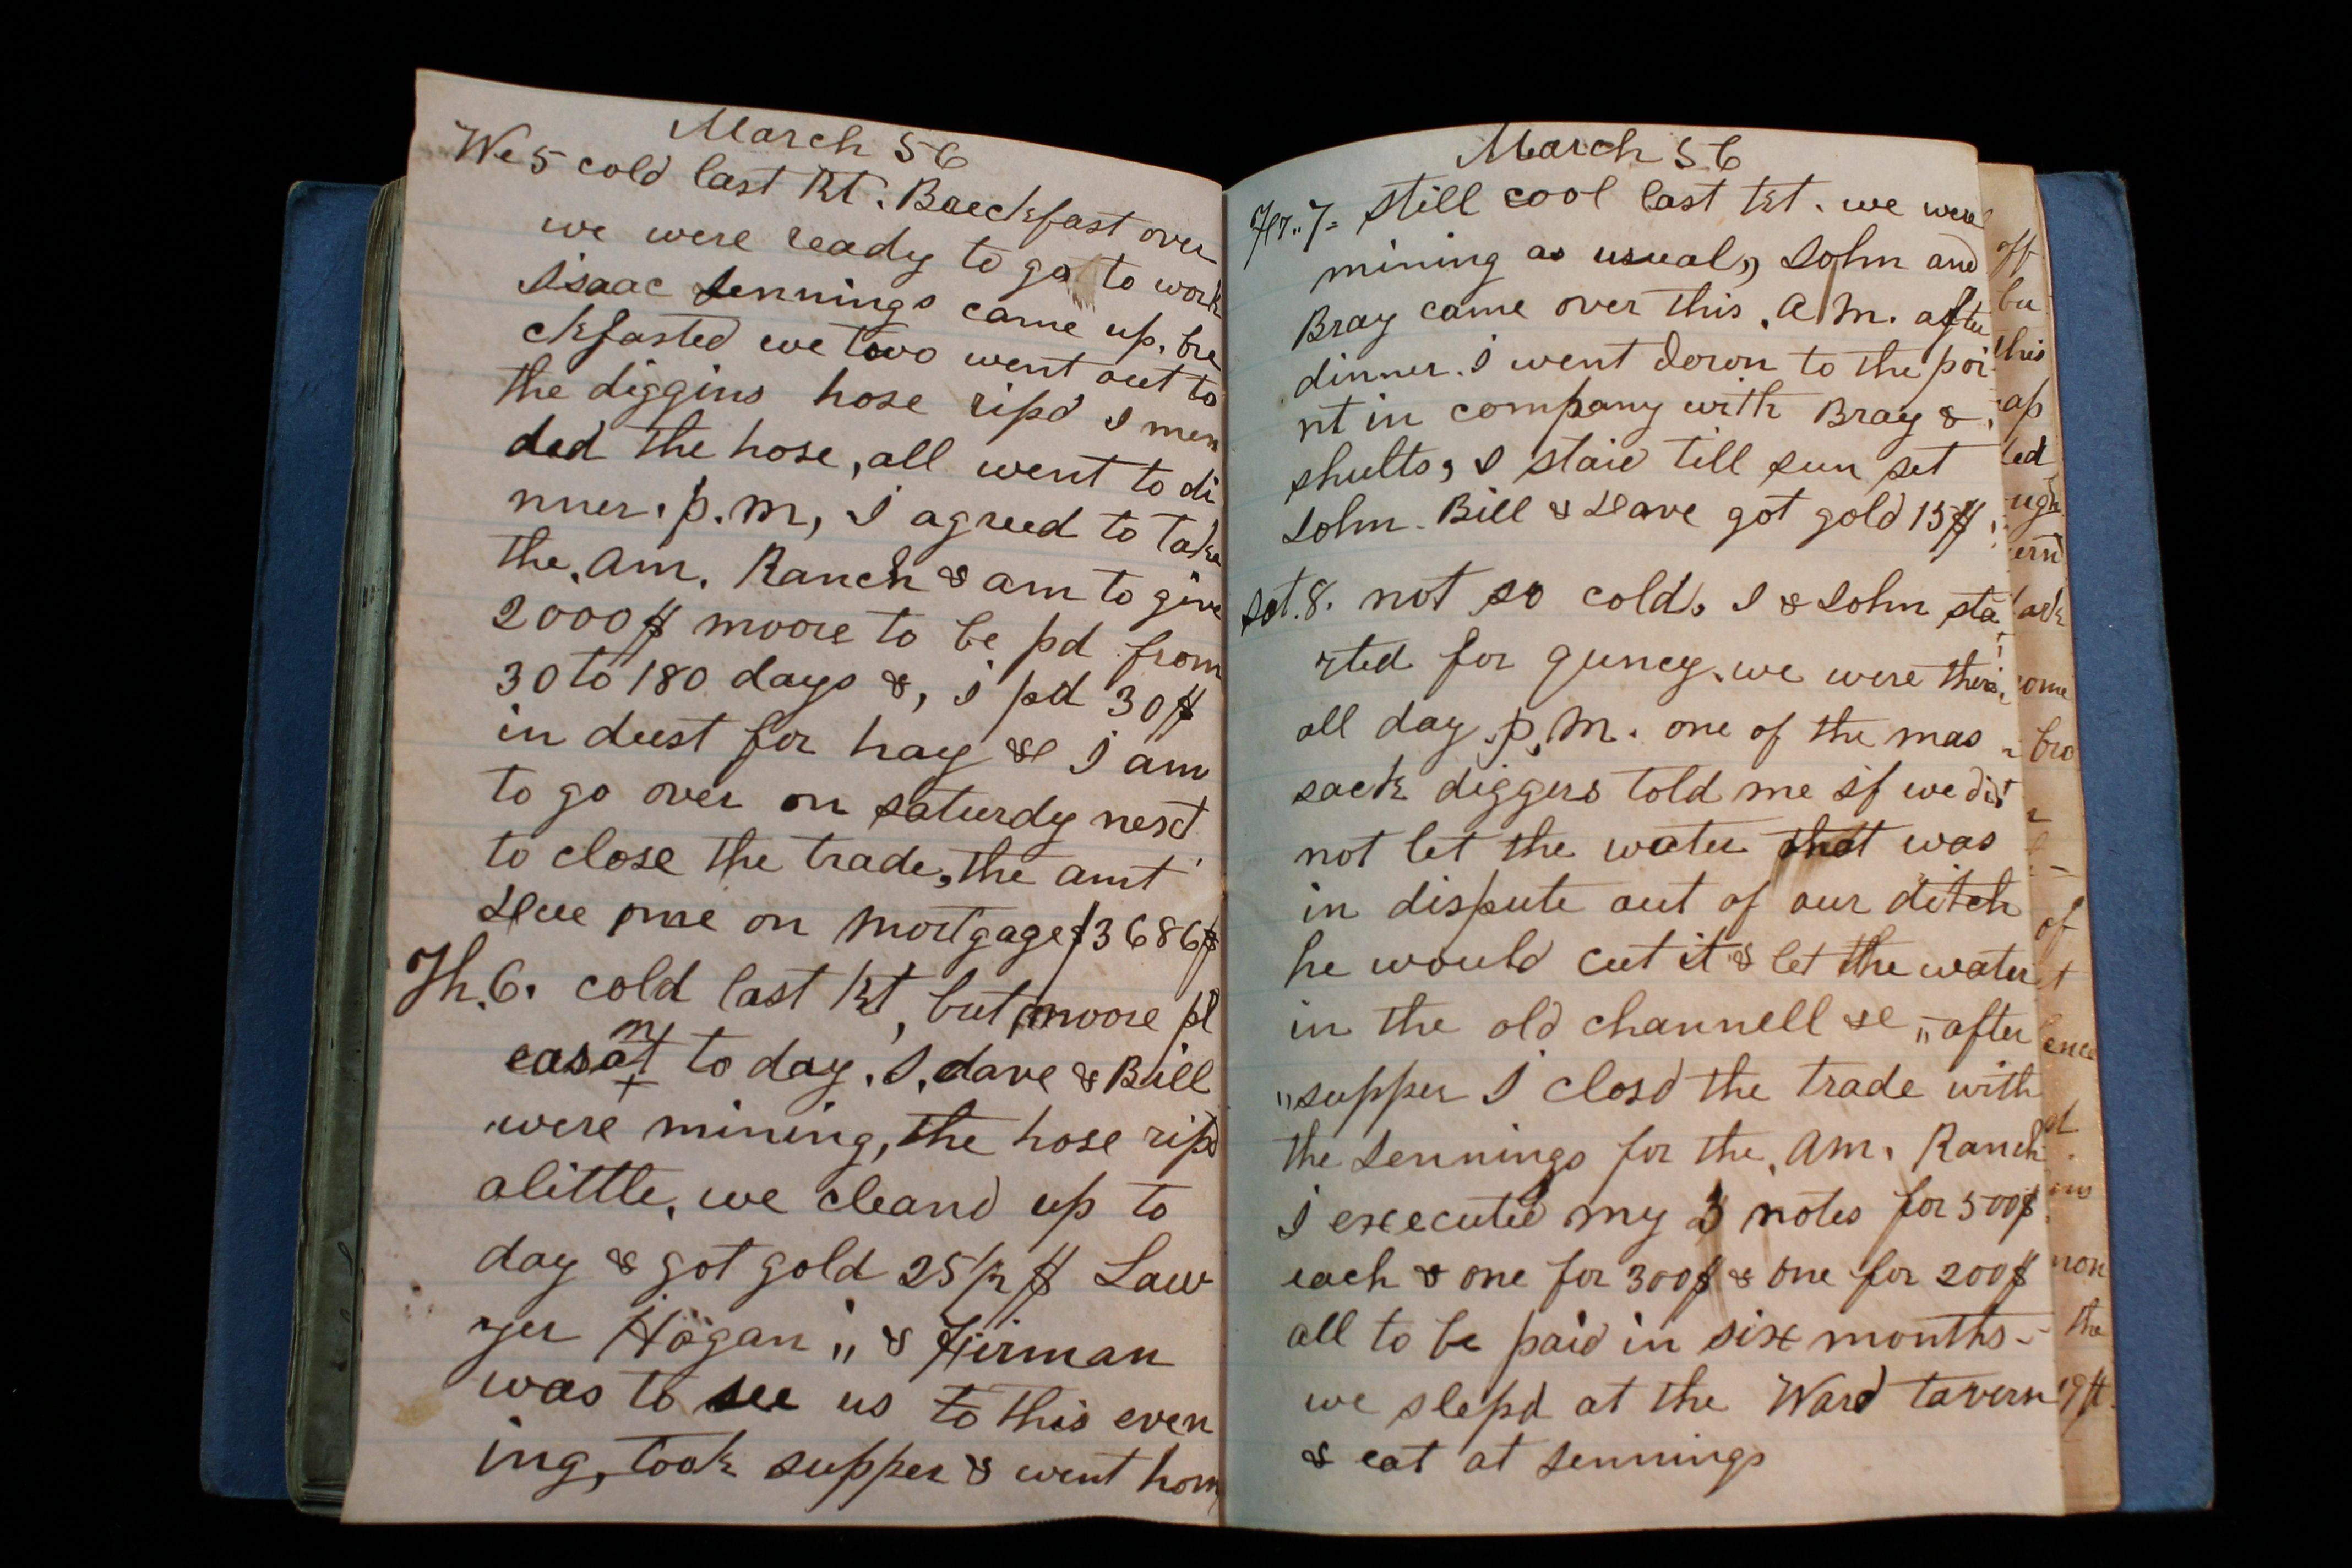 March 56
We 5 cold last Kt. Baeckfast over
we were ready to go to work
Isaac Jennings came up. bre
ckfasted we two went out to
the diggins hose ripd I men
ded the hose, all went to di
nner. p.m, I agreed to take
the. Am. Ranch & am to give
2000$ moore to be pd from
30 to 180 days &, I pd 30$
in dust for hay &c I am
to go over on saturdy next
to close the trade, the amt
Due me on mortgage $3686$
Th. 6. cold last Kt, but moore pl
easant to day. I. dave & Bill
were mining, the hose ripd
alittle. we cleand up to
day & got gold 25/2 $ Law
yer Hogan ,, & Firman
was to see us to this even
ing, took supper & went hom
March 56
Fr.. 7= still cool last Kt. we were
mining as usual,, John and
Bray came over this. A.M. after
dinner. I went down to the poi
nt in company with Bray &
shults, I staid till sun set
John. Bill & Dave got gold 15$
Sat. 8. not so cold. I & John sta
rted for quncy. we were there
all day. p.M. one of the mas
sack diggers told me if we did
not let the water that was
in dispute out of our ditch
he would cut it & let the water
in the old channell &c ,, after
,,supper I closd the trade with
the Jennings for the. Am. Ranch
I executed my 3 notes for 500$
each & one for 300$ & one for 200$
all to be paid in six months -
we slepd at the Ward tavern
& eat at Jennings
off
bu
this
ap
led
ugh
ern
ark
ome
bro
of
t
ence
at
ms
non
the
19$